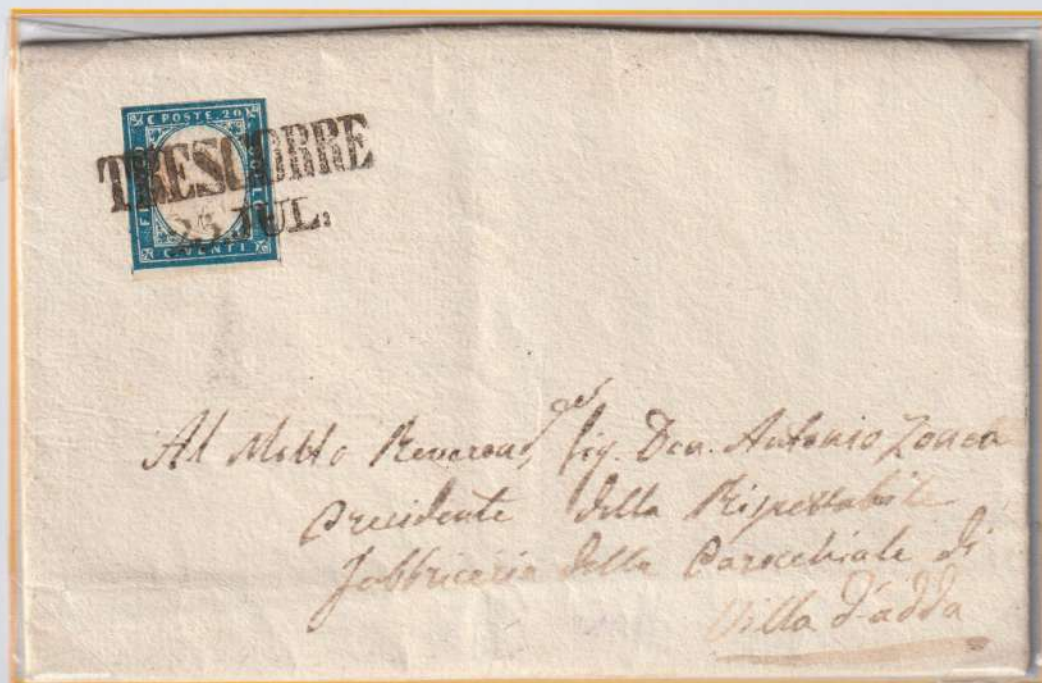 C POSTE 20
TRESCORRE
25 JUL.
C VENTI
Al Molto Reverend Sig. Don. Antonio Zonca
Presidente della Rispettabile
Fabbriceria della Parocchiale di
Villa d'adda